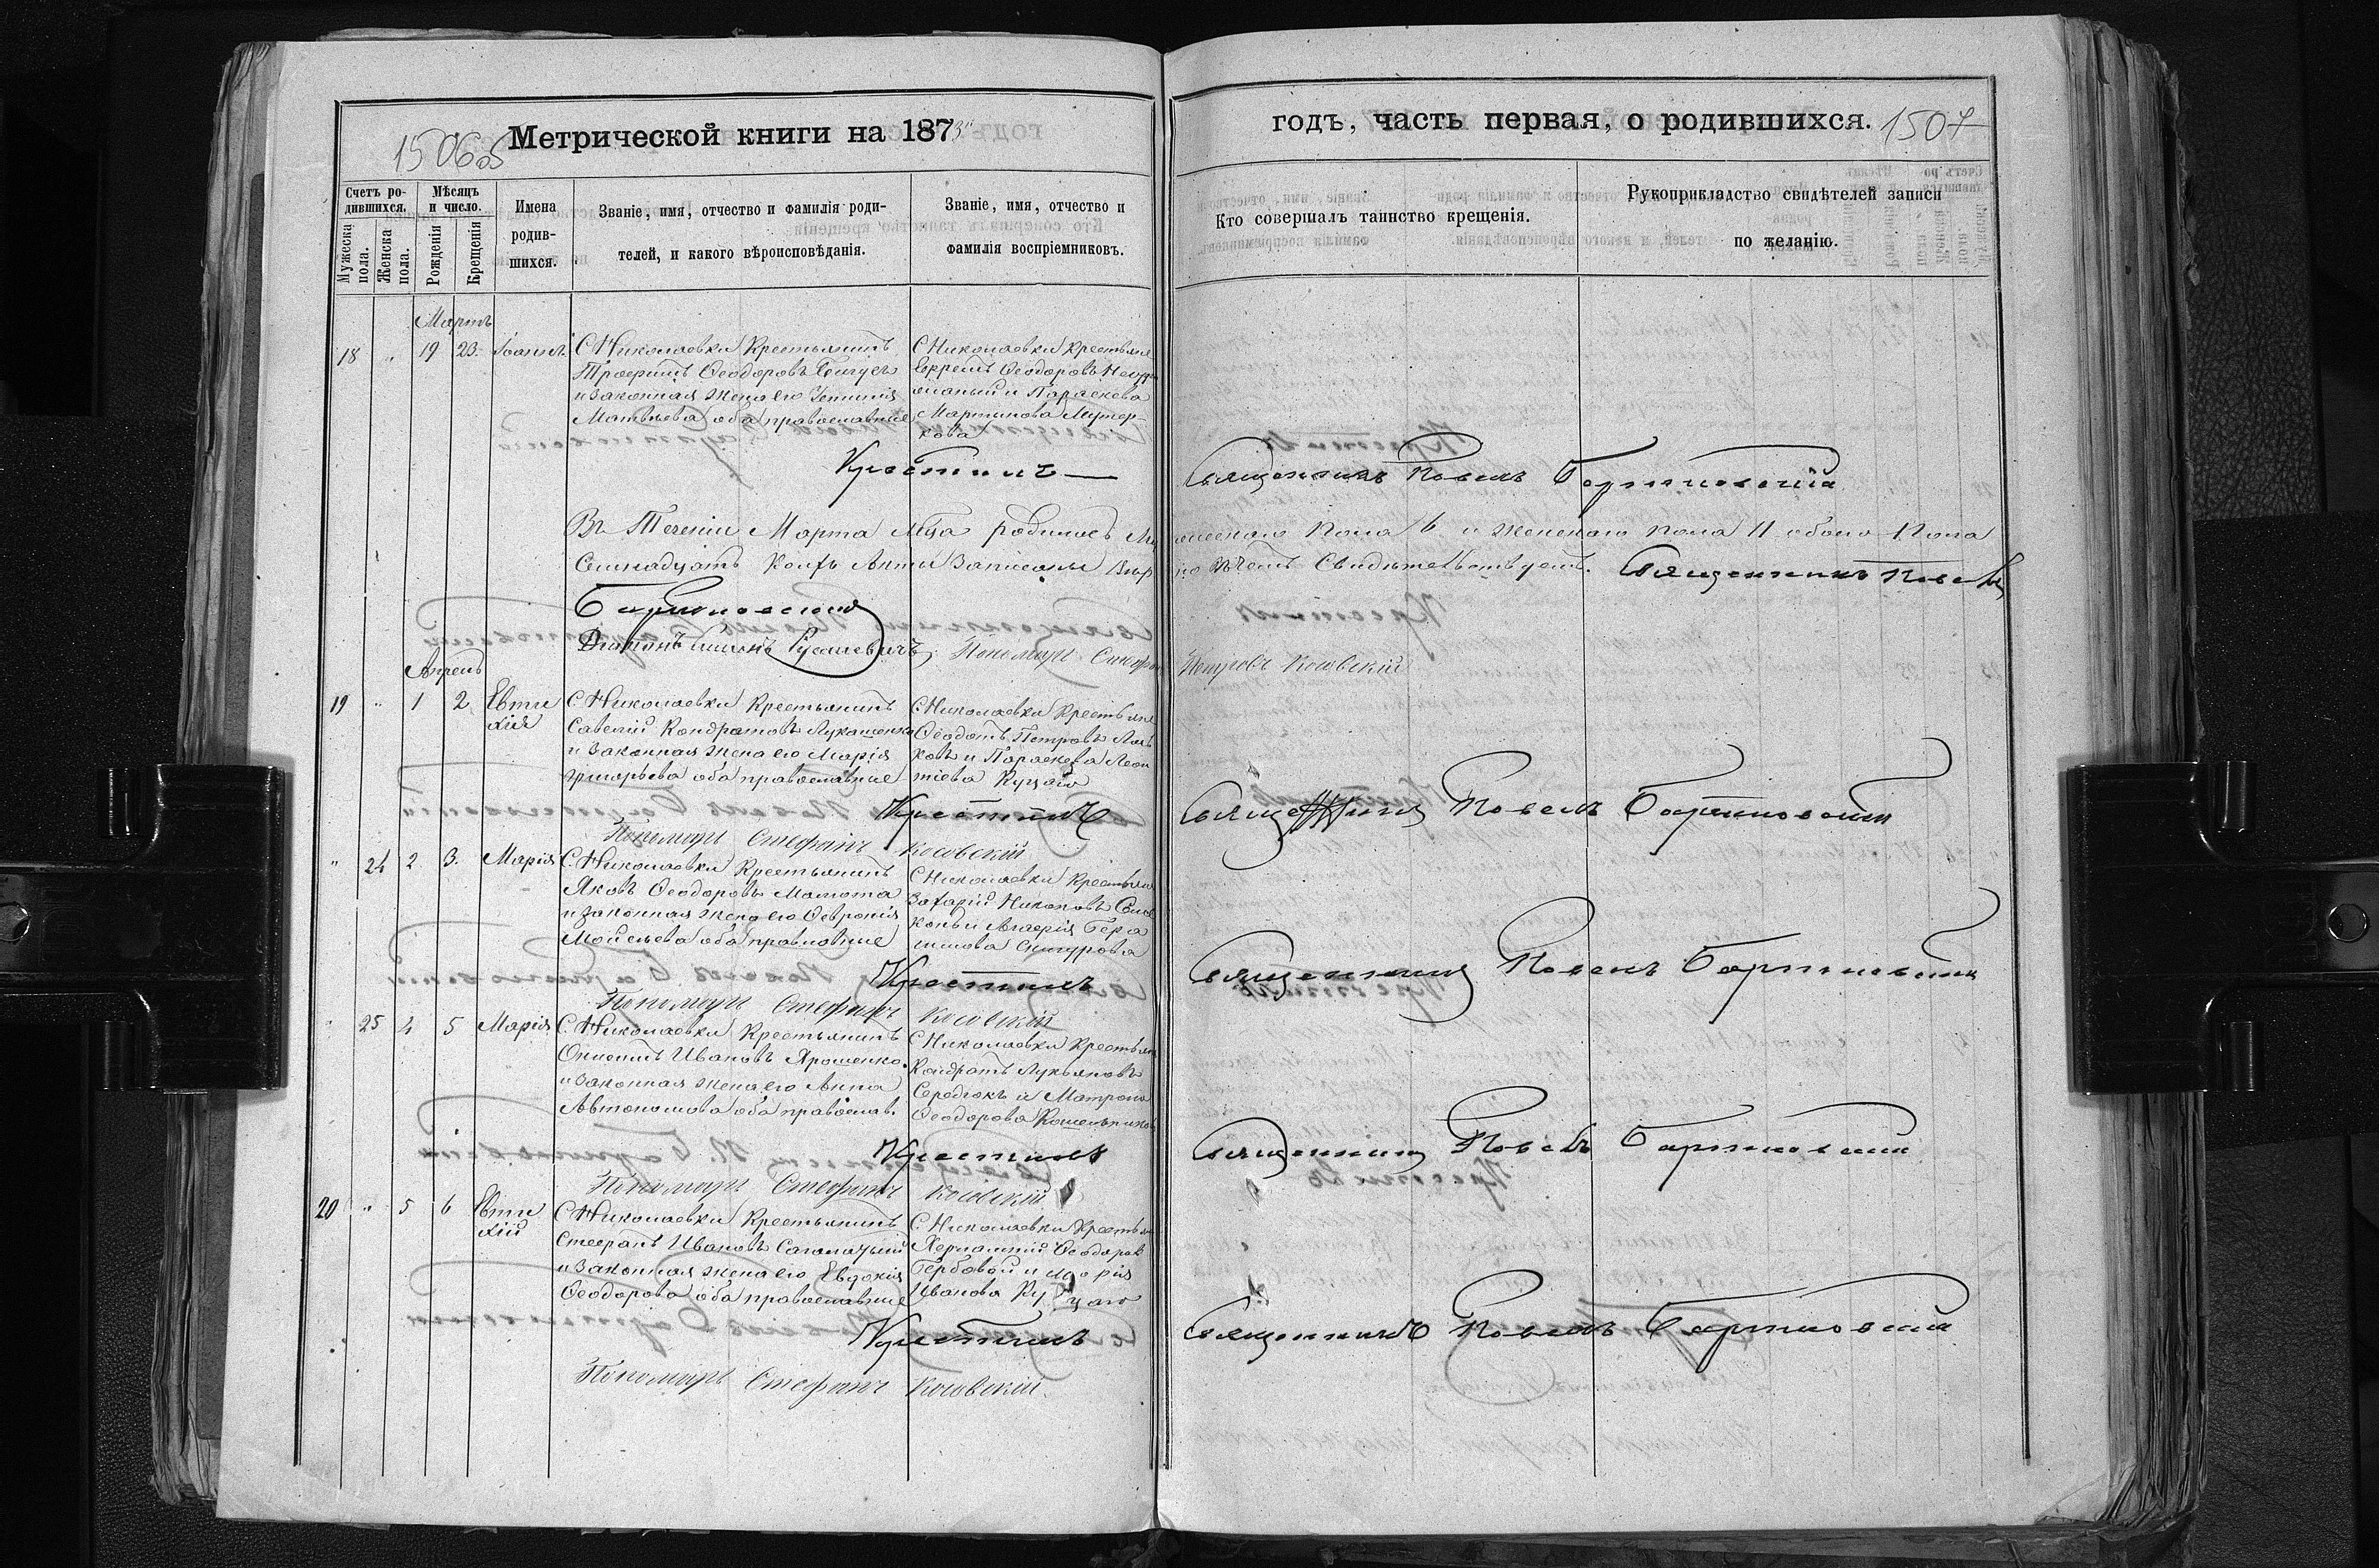 Метрической книги на 1873
годъ, часть первая, о родившихся.
1506об
1507
Счетъ ро-
дившихся.
Мужеска
пола.
Женска
пола.
Мѣсяцъ
и число.
Рожденія
Крещенія
Имена
родив-
шихся.
Званіе, имя, отчество и фамилія роди-
телей, и какого вѣроисповѣданія.
Званіе, имя, отчество и
фамилія воспріемниковъ.
Кто совершалъ таинство крещенія.
Рукоприкладство свидѣтелей записи
по желанію.
Мартъ
18 " 19 23 Іоаннъ
С. Николаевки Крестьянинъ
Трофимъ Ѳеодоровъ
и законная жена его
Матвѣева оба православные
С Николаевки Крестьяне
Ефремъ Ѳеодоровъ
и Параскева
Мартинова
кова
Крестилъ
Священникъ Павелъ Бартновскій
Въ Теченіи Марта Мца родилось Мужескаго пола 6 и женскаго пола 11 обоего Пола
Семнадцать коихъ Акты Записаны Вѣрно въ чемъ Свидѣтельствуемъ. Священникъ Павелъ
Бартновскій
Пономарь Стефанъ Петровъ Косовскій
Апрель
19 " 1 2 Евти
хій
С. Николаевки Крестьянинъ
Савелій Кондратовъ Лукашенко
и законная жена его Марія
Григорьева оба православные
С. Николаевки Крестьяне
Ѳеодотъ Петровъ
ковъ и Параскева Леон
тіева Куцаго
Крестилъ
Священникъ Павелъ Бартновскій
Пономарь Стефанъ Косовскій
" 24 2 3 Марія
С. Николаевки Крестьянинъ
Яковъ Ѳеодоровъ Мамота
и законная жена его Ѳевронія
Мойсеева оба православные
С Николаевки Крестьяне
Захарій Никоновъ
Гера
симова
Крестилъ
Священникъ Павелъ Бартновскій
Пономарь Стефанъ Косовскій
" 25 4 5 Марія
С. Николаевки Крестьянинъ
Онисимъ Ивановъ Ярошенко
и законная жена его Анна
Автономова оба православ.
С Николаевки Крестьяне
Кондратъ Лукьяновъ
Середюкъ и Матрона
Ѳеодорова
Крестилъ
Священникъ Павелъ Бартновскій
Пономарь Стефанъ Косовскій
20 " 5 6 Евти
хій
С. Николаевки Крестьянинъ
Стефанъ Ивановъ
и законная жена его Евдокія
Ѳеодорова оба православные
С. Николаевки Крестьяне
Ѳеодоровъ
Гербовой и Марія
Иванова Куцаго
Крестилъ
Священникъ Павелъ Бартновскій
Пономарь Стефанъ Косовскій.